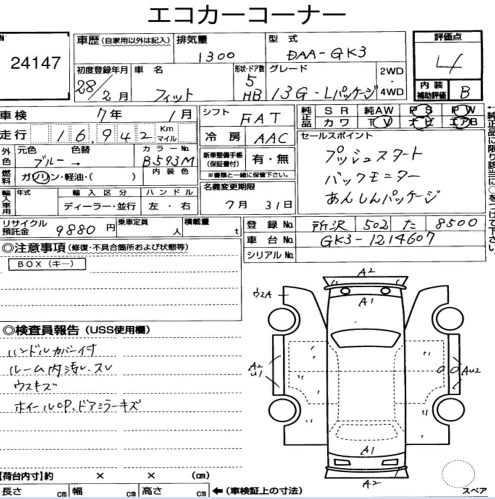 エコカーコーナー
24147
車歴 (自家用以外は記入) 排気量 1300 型式 DAA-GK3
評価点 4
内装補助評価 B
初度登録年月 28/2月 車名 フィット 形状・ドア数 5 HB グレード 13G-Lパッケージ 2WD・4WD
車検 7年 1月
シフト FAT
純正品 SR 純AW PS PW カワ TV ナビ エアB
走行 16,942 Km マイル
冷房 AAC
セールスポイント
プッシュスタート
バックモニター
あんしんパッケージ
外色 元色 ブルー→ 色替 カラーNo. B593M
内装色
新車整備手帳(保証書付) 有・無
※書類と一緒に保管下さい。
燃料 ガソリン・軽油・( )
名義変更期限 7月31日
輸入車用 年式 輸入区分 ディーラー・並行 ハンドル 左・右
リサイクル預託金 9880円 乗車定員 人 積載量 t
登録No. 所沢 502 た 8500
車台No. GK3-1214607
シリアルNo.
◎注意事項 (修復・不具合箇所および状態等)
BOX(キー)
◎検査員報告 (USS使用欄)
ハンドルカバー付
ルーム内汚レ、スレ
ウスキズ
ホイールCP、ドアミラーキズ
A2
ウスA
A1
A2
U1
AU2
A1
A2
スペア
【荷台内寸】約 × × (cm)
長さ cm 幅 cm 高さ cm ←(車検証上の寸法)